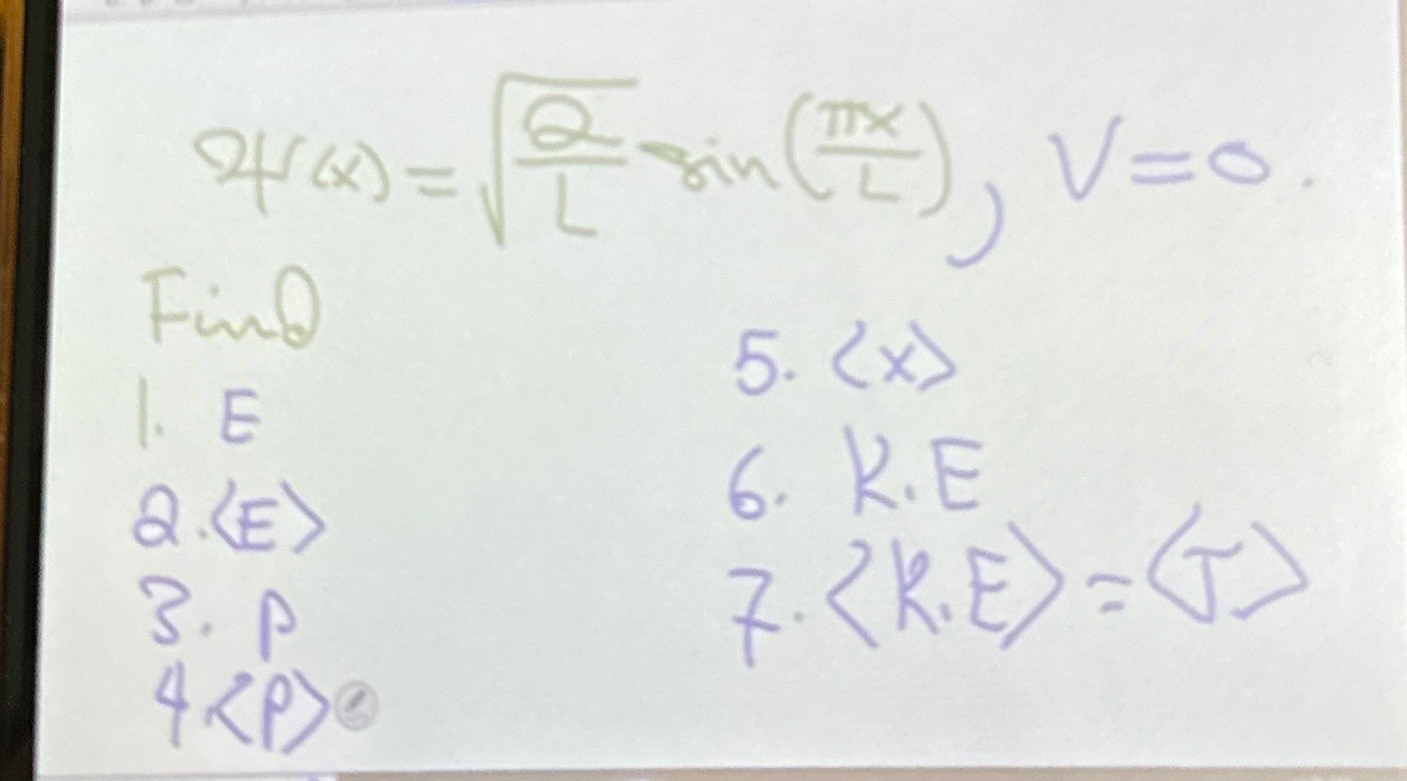 Ψ(x) = √(2/L) sin(πx/L), V=0.
Find
1. E
2. <E>
3. P
4 <P>
5. <x>
6. K.E
7. <K.E> = <T>